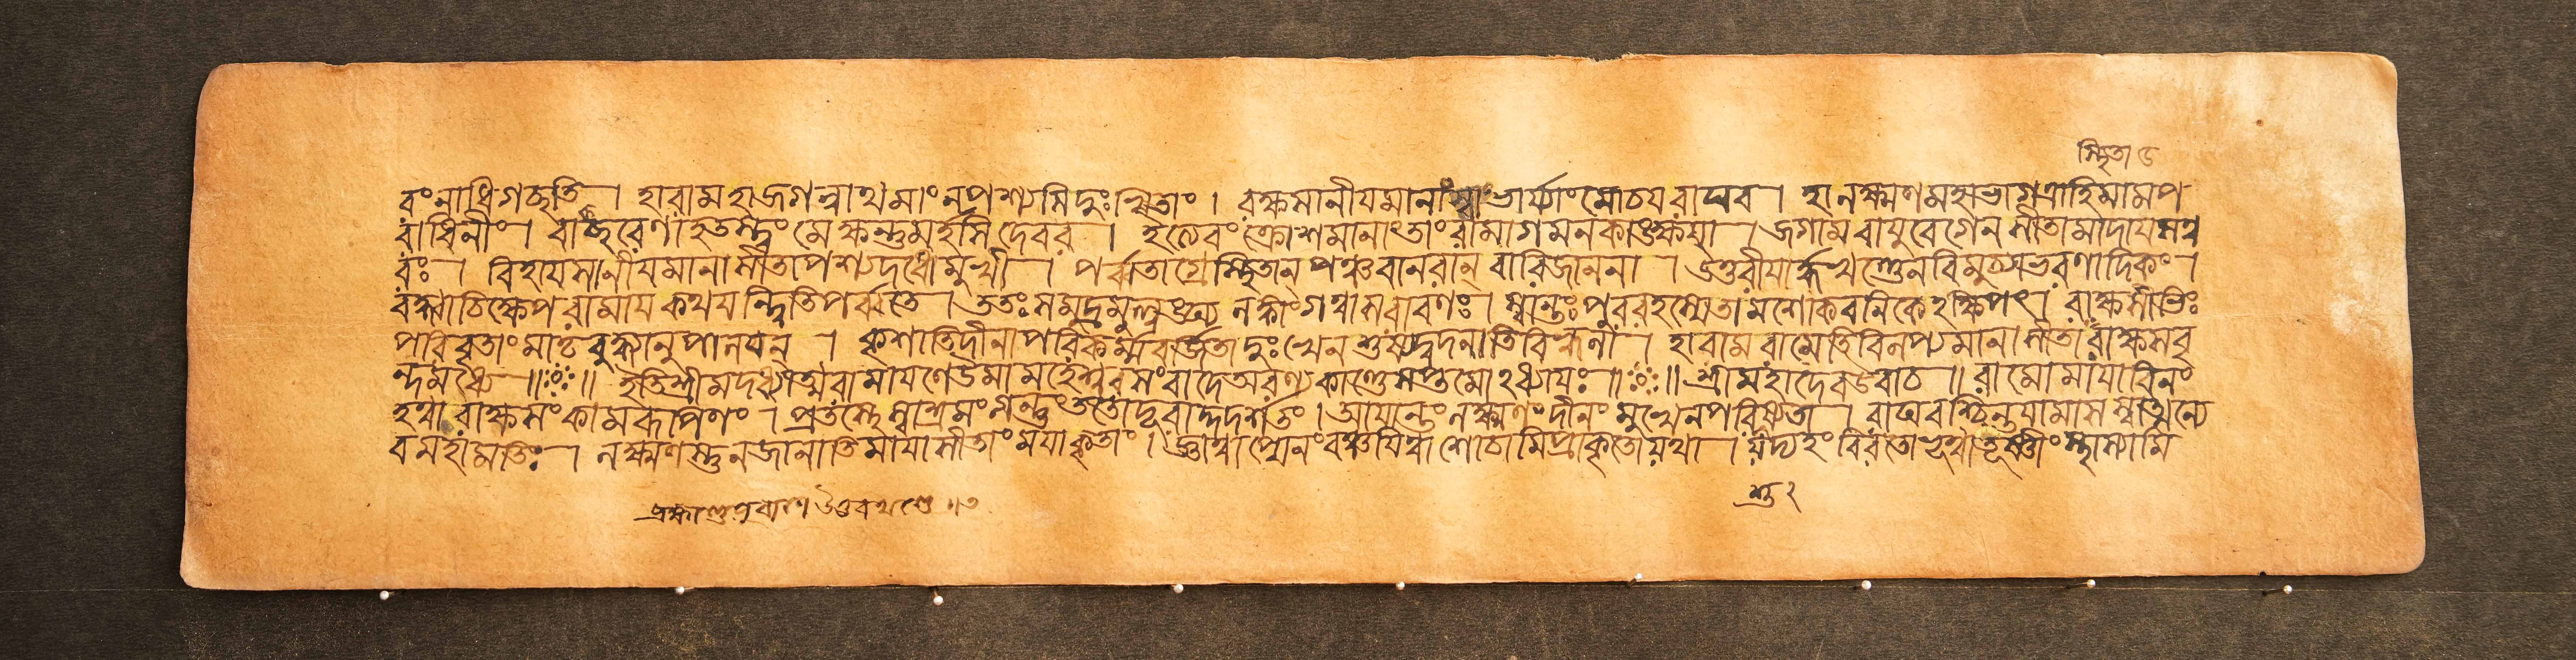 স্থিতা ৬
বং নাধিগচ্ছতি । হা রাম হা জগন্নাথ মাং ন পশ্যসি দুঃখিতাং । রক্ষসা নীয়মানাং স্বাং ভার্য্যাং মোচয় রাঘব । হা লক্ষ্মণ মহাভাগ ত্রাহি মামপ
রাধিনীং । বাক্শরেণাহতস্ত্বং মে ক্ষন্তুমর্হসি দেবর । ইত্যেবং ক্রোশমানাং তাং রামাগমনকাঙ্ক্ষয়া । জগাম বায়ুবেগেন সীতামাদায় সত্ব
রঃ । বিহায়সা নীয়মানা সীতাপশ্যদধোমুখী । পর্ব্বতাগ্রে স্থিতান্ পঞ্চ বানরান্ বারিজাননা । উত্তরীয়ার্দ্ধখণ্ডেন বিমুচ্যাভরণাদিকং ।
বদ্ধ্বা চিক্ষেপ রামায় কথয়ন্ত্বিতি পর্ব্বতে । ততঃ সমুদ্রমুল্লঙ্ঘ্য লঙ্কাং গত্বা স রাবণঃ । স্বান্তঃপুরে রহস্যেতামশোকবনিকেঽক্ষিপৎ । রাক্ষসীভিঃ
পরিবৃতাং মাতৃবুদ্ধ্যানুপালয়ন্ । কৃশাতিদীনা পরিকর্ম্মবর্জ্জিতা দুঃখেন শুষ্যদ্বদনাতিবিহ্বলা । হা রাম রামেতি বিলপ্যমানা সীতা রাক্ষসবৃ
ন্দমধ্যে ॥ ॥ ইতি শ্রীমদধ্যাত্মরামায়ণে উমামহেশ্বরসংবাদে অরণ্যকাণ্ডে সপ্তমোঽধ্যায়ঃ ॥ ॥ শ্রীমহাদেব উবাচ ॥ রামো মায়াবিনং
হত্বা রাক্ষসং কামরূপিণং । প্রতস্থে স্বাশ্রমং গন্তুং ততো দূরাদ্দদর্শ তং । আয়ান্তং লক্ষ্মণং দীনং মুখেন পরিশুষ্যতা । রাঘবশ্চিন্তয়ামাস স্বাত্মন্যে
ব মহামতিঃ । লক্ষ্মণস্তন্ন জানাতি মায়াসীতাং ময়া কৃতাং । জ্ঞাত্বাপ্যেনং বঞ্চয়িত্বা শোচামি প্রাকৃতো যথা । যদ্যহং বিরতো ভূত্বা তূষ্ণীং স্থাস্যামি
ব্রহ্মাণ্ডপুরাণে উত্তরখণ্ডে ॥